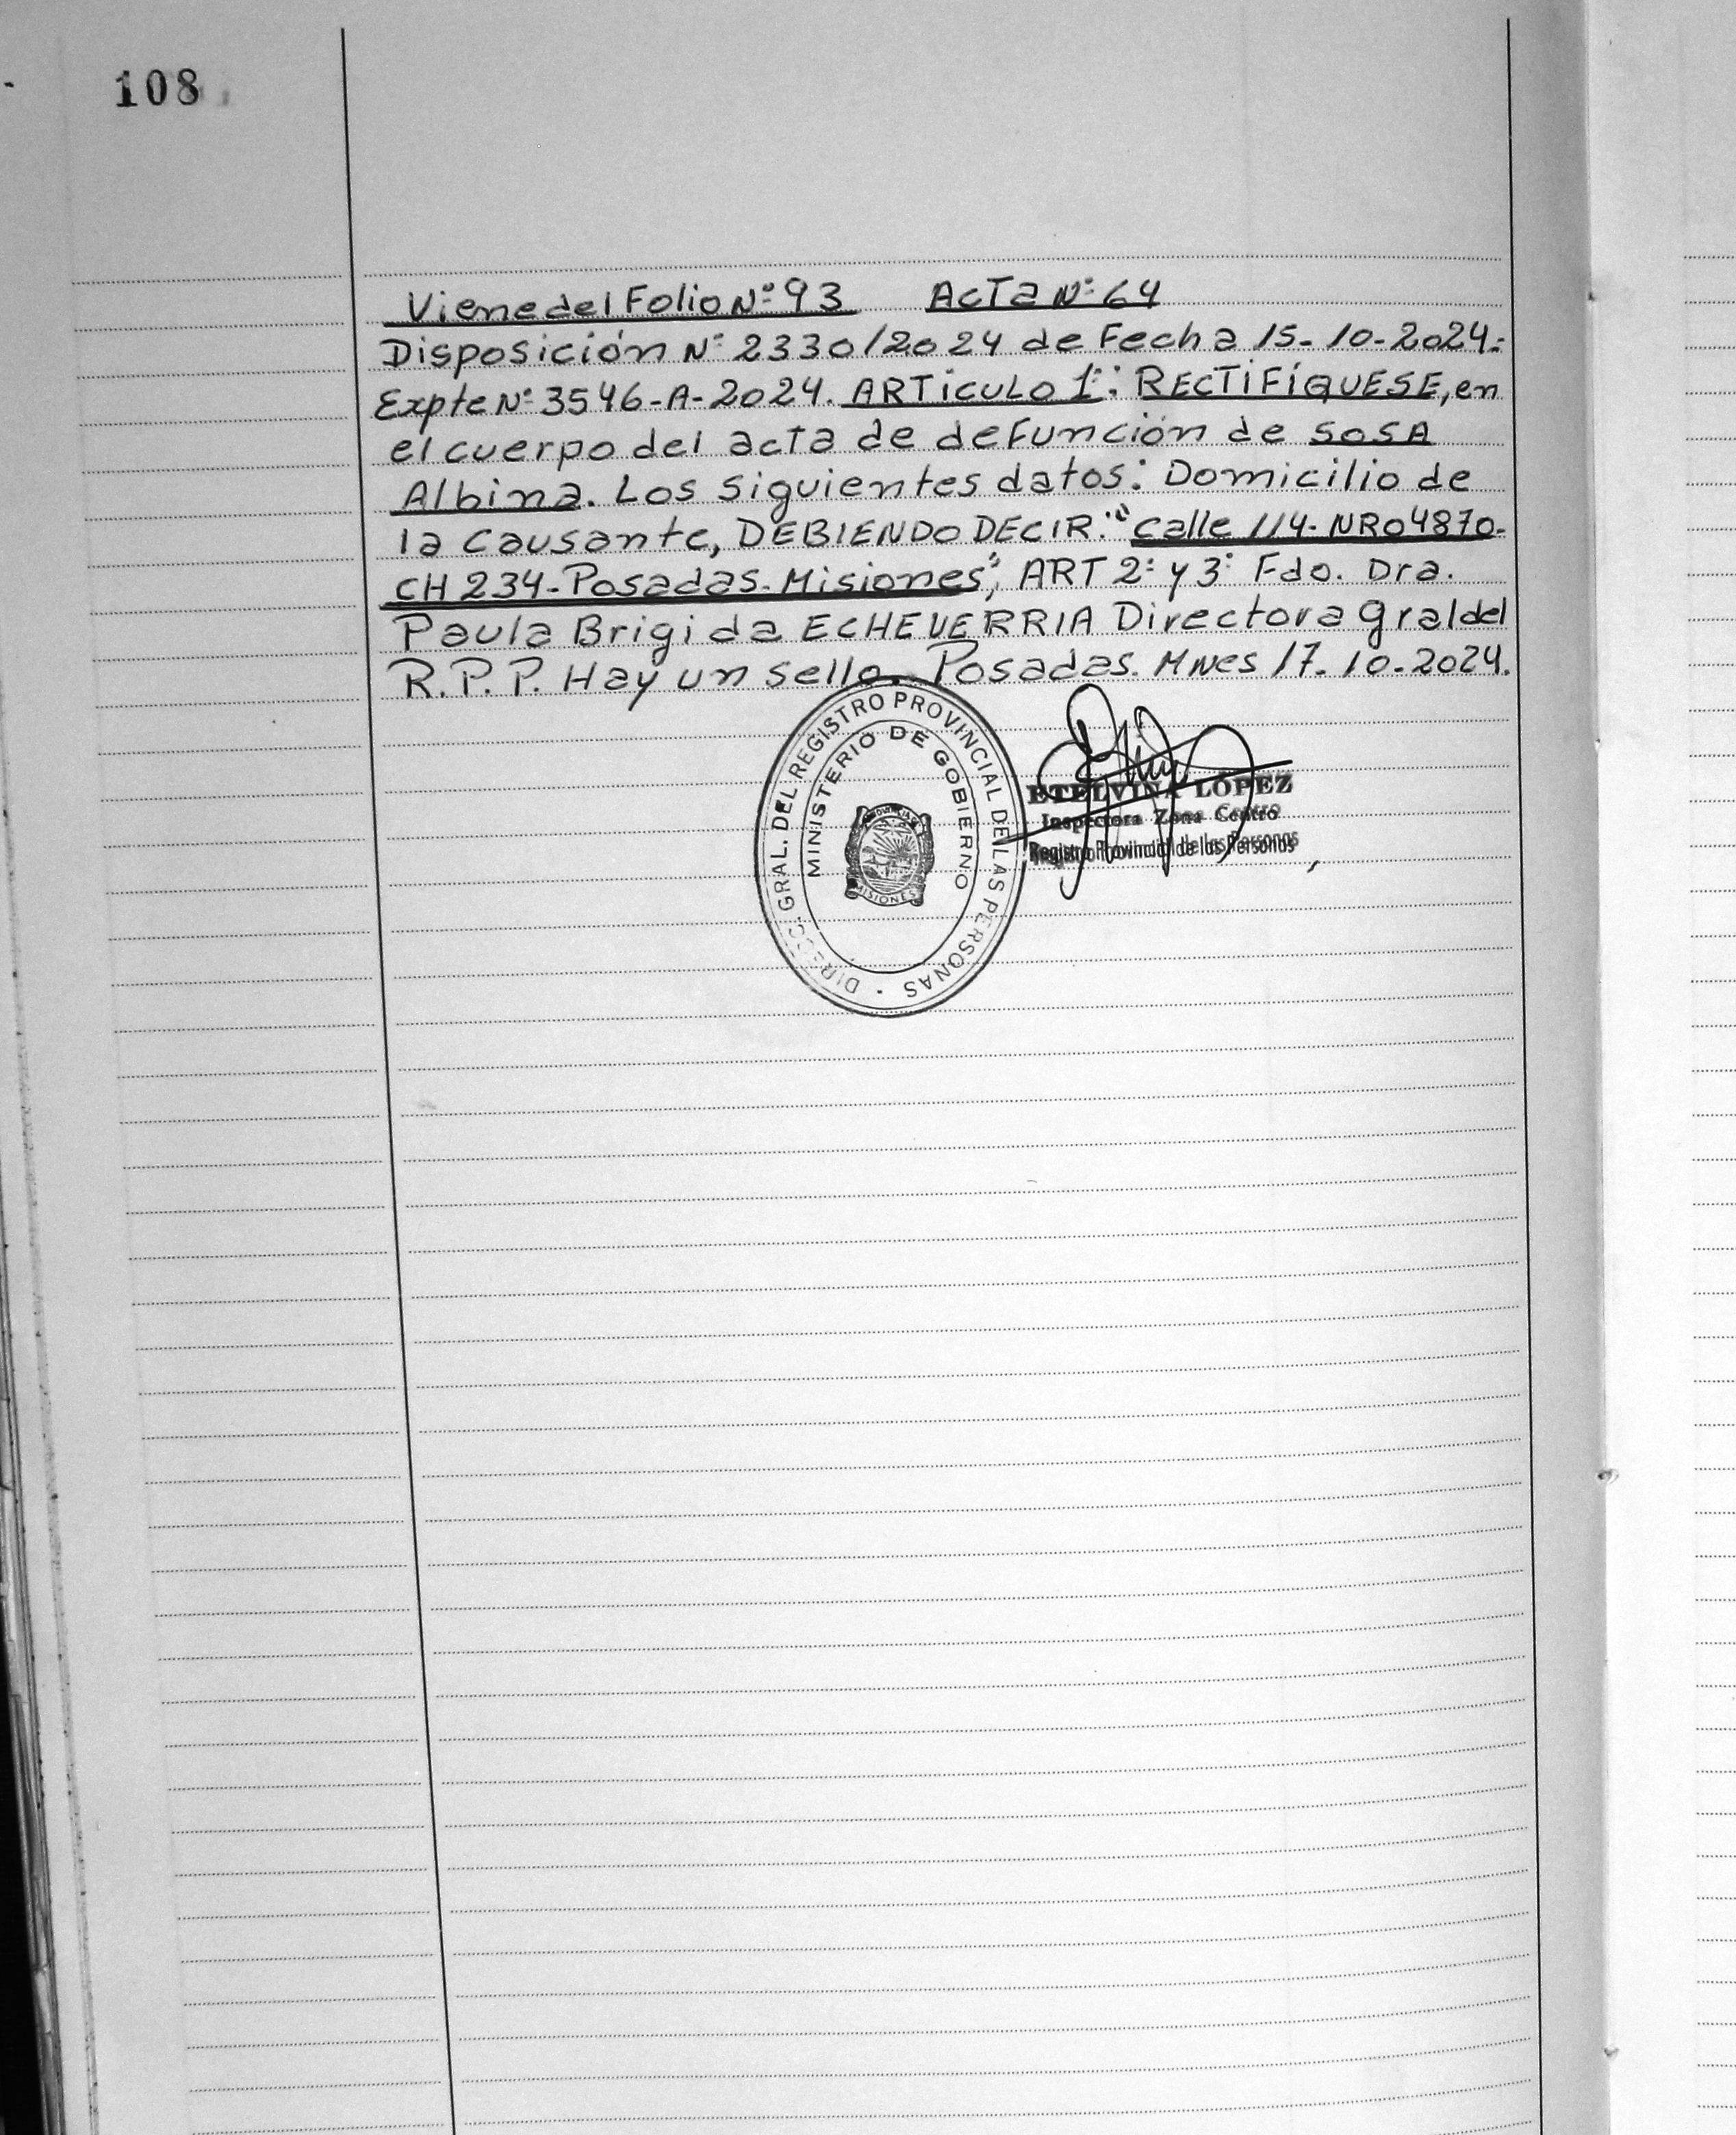 108
Viene del Folio Nº 93 ACTA Nº 64
Disposición Nº 2330/2024 de Fecha 15-10-2024.
Expte Nº 3546-A-2024. ARTICULO 1º: RECTIFÍQUESE, en
el cuerpo del acta de defunción de SOSA
Albina. Los siguientes datos: Domicilio de
la Causante, DEBIENDO DECIR: "Calle 114-NRO4870-
CH 234-Posadas-Misiones", ART 2º y 3º Fdo. Dra.
Paula Brigida ECHEVERRIA Directora Gral del
R.P.P. Hay un sello. Posadas. Mnes 17-10-2024.
DIRECC. GRAL. DEL REGISTRO PROVINCIAL DE LAS PERSONAS
MINISTERIO DE GOBIERNO
MISIONES
ETELVINA LÓPEZ
Inspectora Zona Centro
Registro Provincial de las Personas